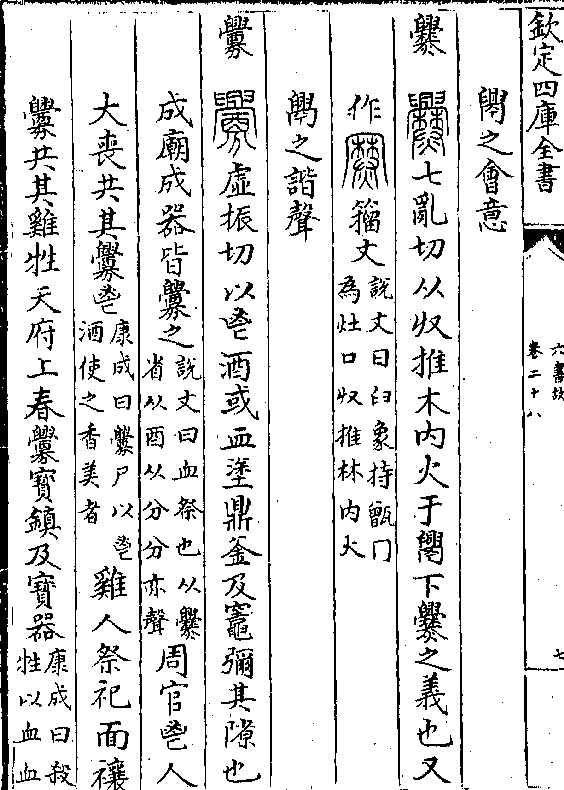 欽定四庫全書
六書故
卷二十八
七
之會意
爨 七亂切从収推木内火于下爨之義也又
作 籀文說文曰臼象持甑冂為灶口収推林内火
之諧聲
釁 虛振切以鬯酒或血塗鼎釜及竈彌其隙也
成廟成器皆釁之說文曰血祭也从爨省从酉从分分亦聲周官鬯人
大喪共其釁鬯康成曰釁尸以鬯酒使之香美者雞人祭祀面禳
釁共其雞牲天府上春釁寶鎮及寶器康成曰殺牲以血血